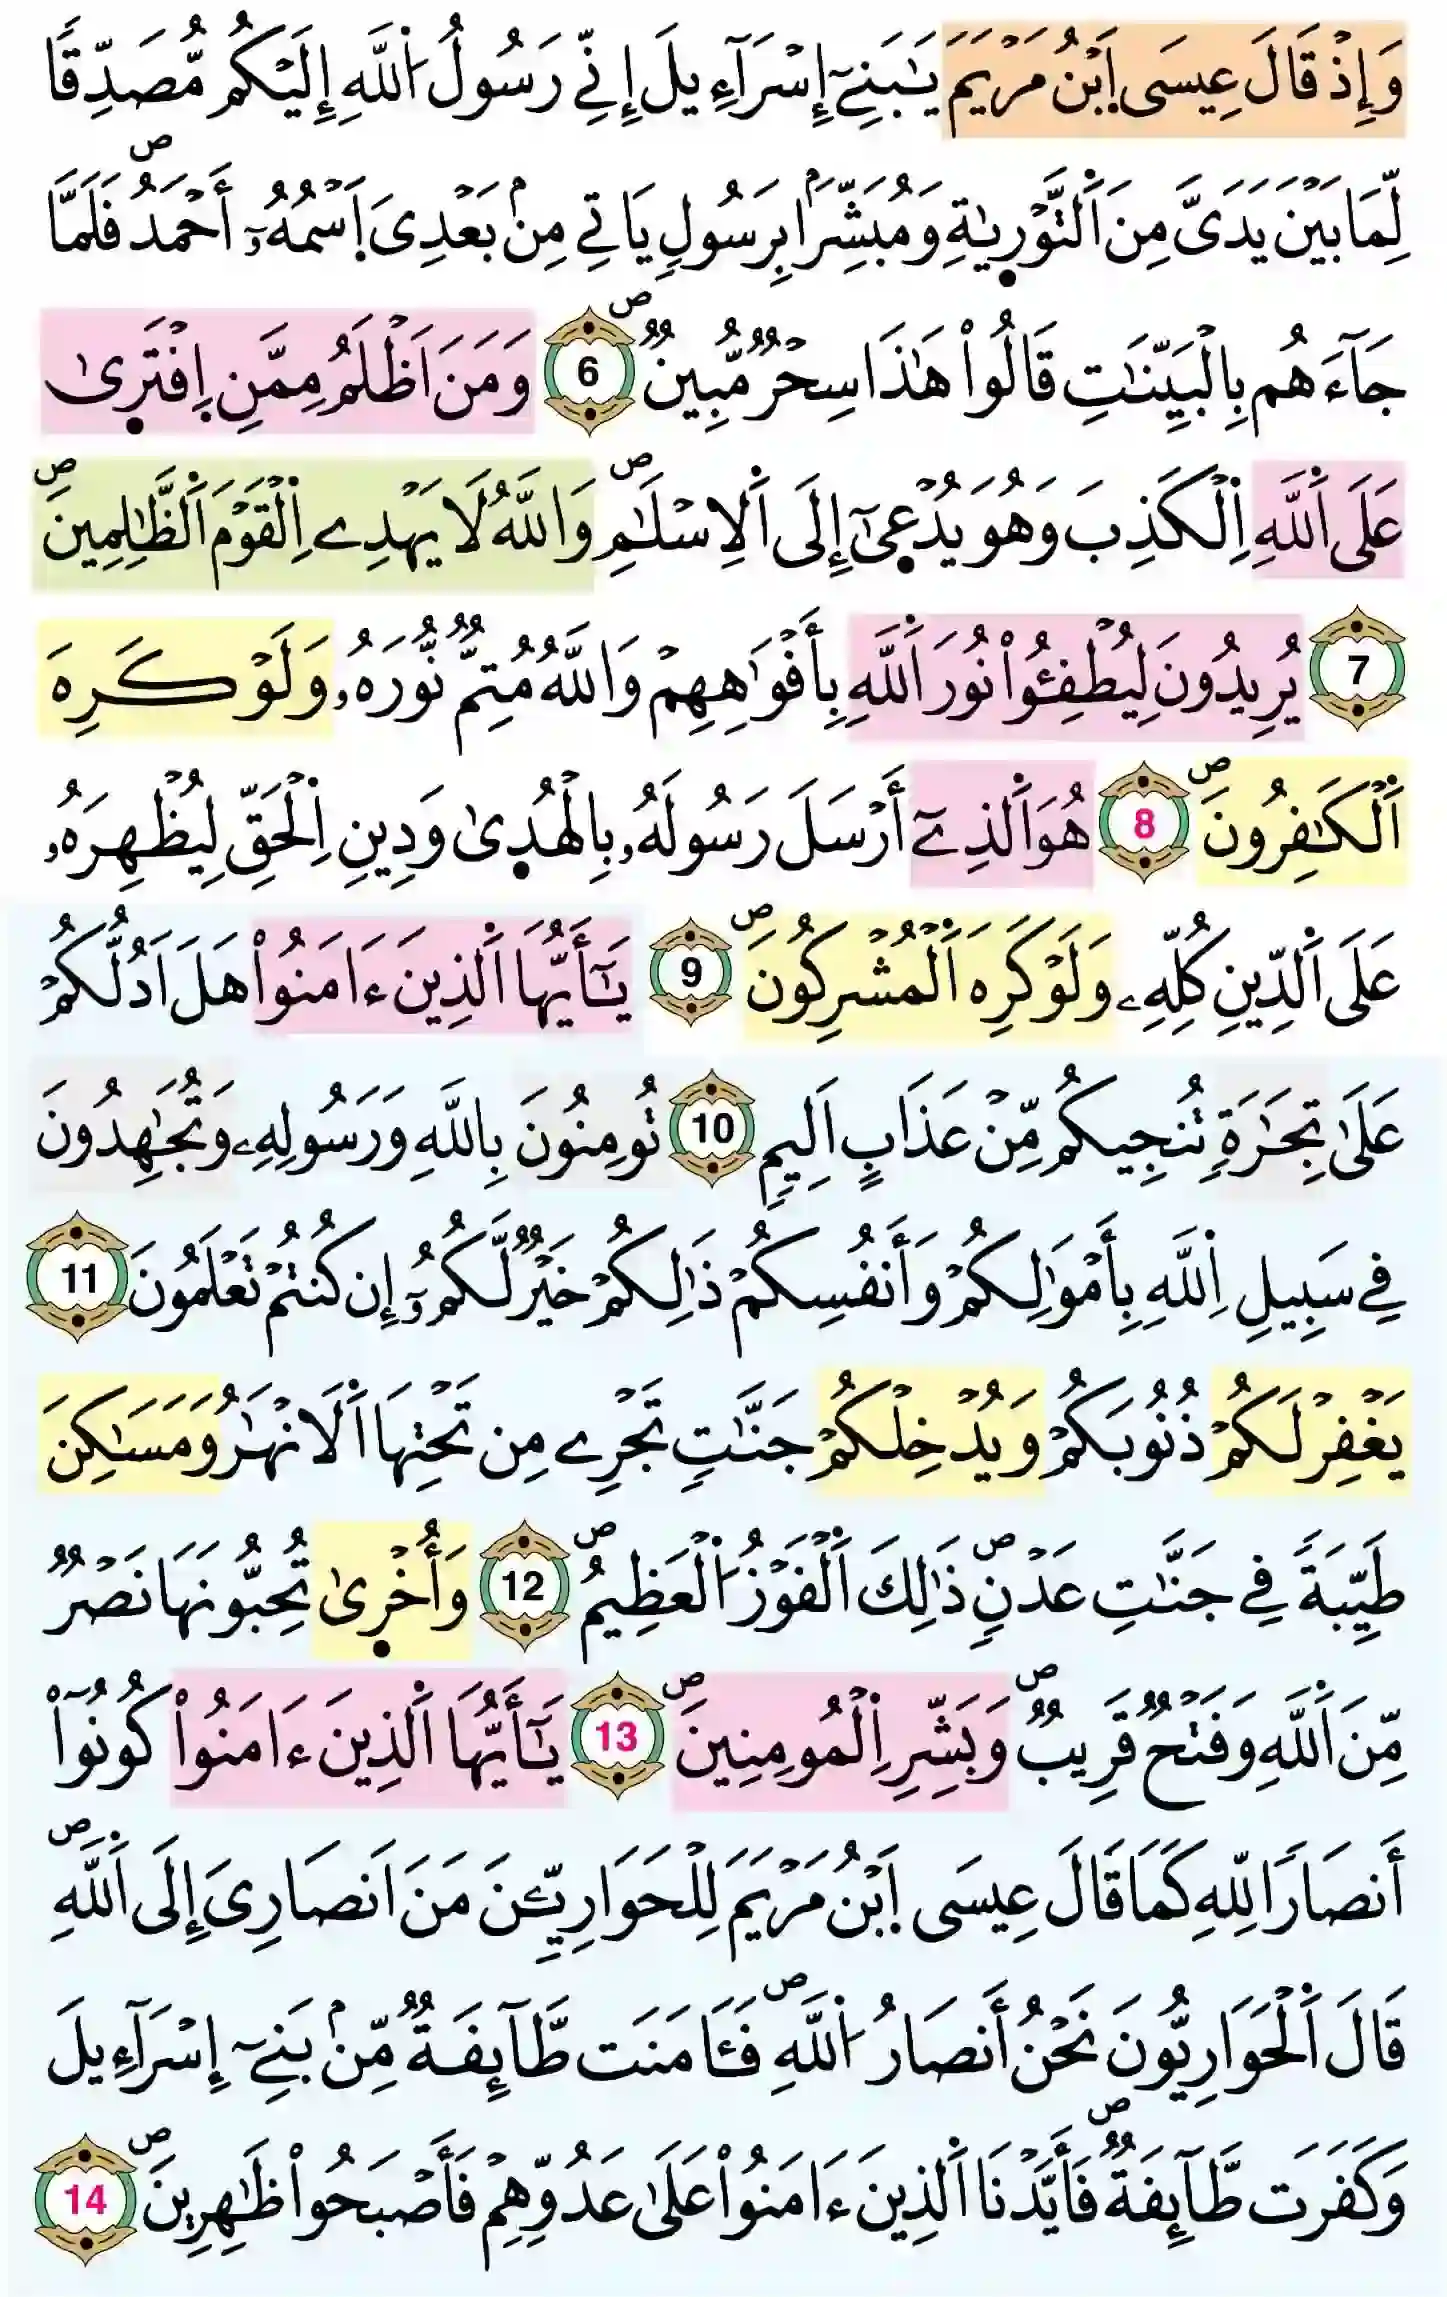 وَإِذْ قَالَ عِيسَى اَ۪بْنُ مَرْيَمَ يَٰبَنِےٓ إِسْرَآءِيلَ إِنِّے رَسُولُ اُ۬للَّهِ إِلَيْكُم مُّصَدِّقاٗ
لِّمَا بَيْنَ يَدَىَّ مِنَ اَ۬لتَّوْر۪يٰةِ وَمُبَشِّراَۢ بِرَسُولٖ يَاتِے مِنۢ بَعْدِىَ اَ۪سْمُهُۥٓ أَحْمَدُۖ فَلَمَّا
جَآءَهُم بِالْبَيِّنَٰتِ قَالُواْ هَٰذَا سِحْرٞ مُّبِينٞۖ 6 وَمَنَ اَظْلَمُ مِمَّنِ اِ۪فْتَر۪يٰ
عَلَى اَ۬للَّهِ اِ۬لْكَذِبَ وَهُوَ يُدْع۪يٰٓ إِلَى اَ۬لِاسْلَٰمِۖ وَاللَّهُ لَا يَهْدِے اِ۬لْقَوْمَ اَ۬لظَّٰلِمِينَۖ
7 يُرِيدُونَ لِيُطْفِـُٔواْ نُورَ اَ۬للَّهِ بِأَفْوَٰهِهِمْ وَاللَّهُ مُتِمّٞ نُّورَهُۥ وَلَوْ كَرِهَ
اَ۬لْكَٰفِرُونَۖ 8 هُوَ اَ۬لذِےٓ أَرْسَلَ رَسُولَهُۥ بِالْهُد۪يٰ وَدِينِ اِ۬لْحَقِّ لِيُظْهِرَهُۥ
عَلَى اَ۬لدِّينِ كُلِّهِۦ وَلَوْ كَرِهَ اَ۬لْمُشْرِكُونَۖ 9 يَٰٓأَيُّهَا اَ۬لذِينَ ءَامَنُواْ هَلَ اَدُلُّكُمْ
عَلَىٰ تِجَٰرَةٖ تُنجِيكُم مِّنْ عَذَابٍ اَلِيمٖ 10 تُومِنُونَ بِاللَّهِ وَرَسُولِهِۦ وَتُجَٰهِدُونَ
فِے سَبِيلِ اِ۬للَّهِ بِأَمْوَٰلِكُمْ وَأَنفُسِكُمْ ذَٰلِكُمْ خَيْرٞ لَّكُمُۥٓ إِن كُنتُمْ تَعْلَمُونَ 11
يَغْفِرْ لَكُمْ ذُنُوبَكُمْ وَيُدْخِلْكُمْ جَنَّٰتٖ تَجْرِے مِن تَحْتِهَا اَ۬لَانْهَٰرُ وَمَسَٰكِنَ
طَيِّبَةٗ فِے جَنَّٰتِ عَدْنٖۖ ذَٰلِكَ اَ۬لْفَوْزُ اُ۬لْعَظِيمُۖ 12 وَأُخْر۪يٰ تُحِبُّونَهَا نَصْرٞ
مِّنَ اَ۬للَّهِ وَفَتْحٞ قَرِيبٞۖ وَبَشِّرِ اِ۬لْمُومِنِينَۖ 13 يَٰٓأَيُّهَا اَ۬لذِينَ ءَامَنُواْ كُونُوٓاْ
أَنصَاراٗ لِلهِ كَمَا قَالَ عِيسَى اَ۪بْنُ مَرْيَمَ لِلْحَوَارِيِّـۧنَ مَنَ اَنصَارِىَ إِلَى اَ۬للَّهِۖ
قَالَ اَ۬لْحَوَارِيُّونَ نَحْنُ أَنصَارُ اُ۬للَّهِۖ فَـَٔامَنَت طَّآئِفَةٞ مِّنۢ بَنِےٓ إِسْرَآءِيلَ
وَكَفَرَت طَّآئِفَةٞۖ فَأَيَّدْنَا اَ۬لذِينَ ءَامَنُواْ عَلَىٰ عَدُوِّهِمْ فَأَصْبَحُواْ ظَٰهِرِينَۖ 14